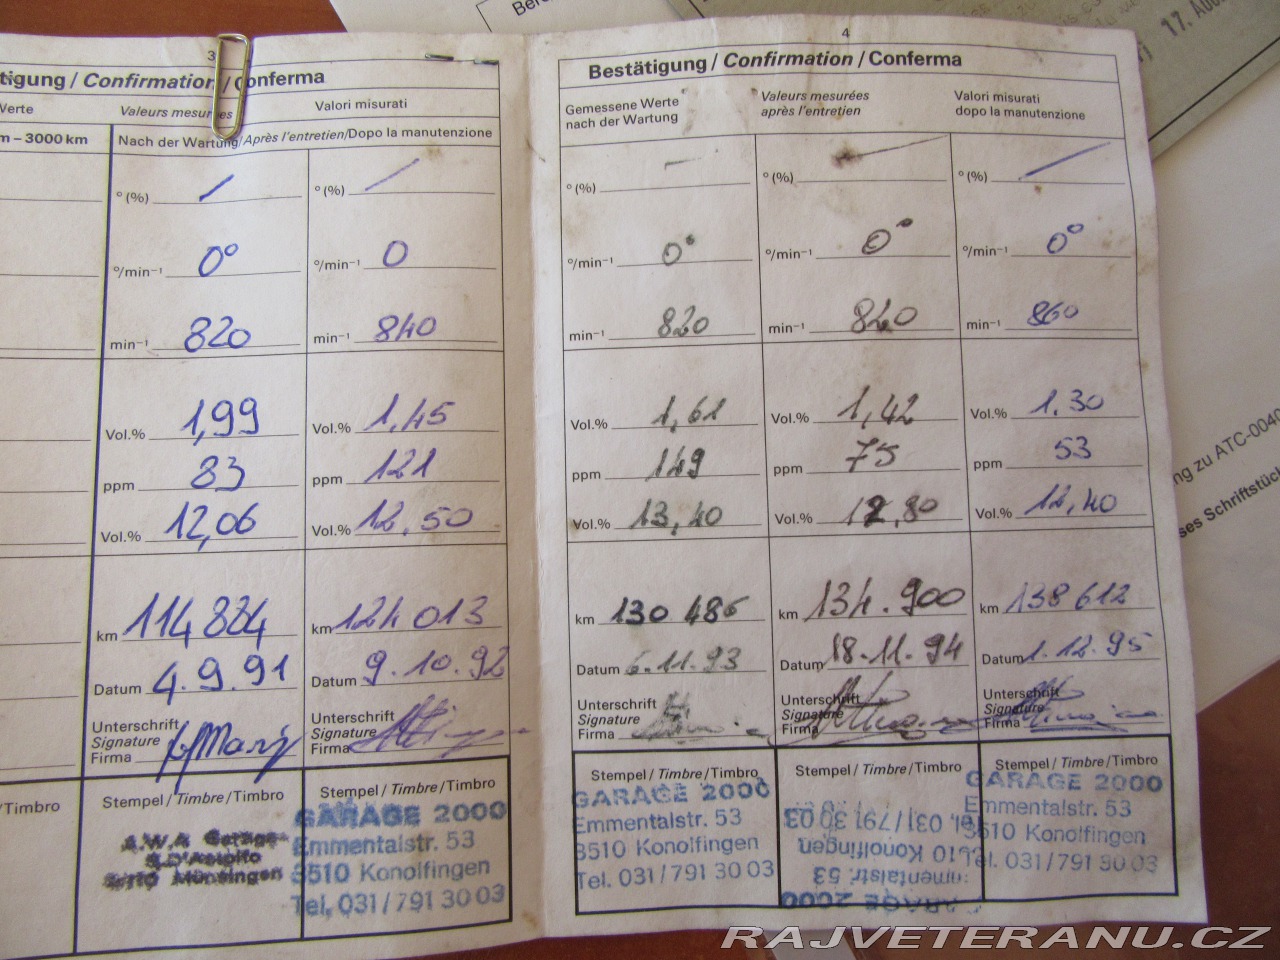 Ber
17. Aug.
3
tigung / Confirmation / Conferma
Werte
Valeurs mesurées
Valori misurati
m – 3000 km
Nach der Wartung/Après l'entretien/Dopo la manutenzione
° (%)
° (%)
°/min⁻¹ 0°
°/min⁻¹ 0
min⁻¹ 820
min⁻¹ 840
Vol.% 1,99
Vol.% 1,45
ppm 83
ppm 121
Vol.% 12,06
Vol.% 12,50
km 114 884
km 124 013
Datum 4.9.91
Datum 9.10.92
Unterschrift
Signature
Firma
Unterschrift
Signature
Firma
/Timbro
Stempel / Timbre / Timbro
A.W.A Garage
Münsingen
Stempel / Timbre / Timbro
GARAGE 2000
Emmentalstr. 53
3510 Konolfingen
Tel. 031/791 30 03
4
Bestätigung / Confirmation / Conferma
Gemessene Werte
nach der Wartung
Valeurs mesurées
après l'entretien
Valori misurati
dopo la manutenzione
° (%)
° (%)
° (%)
°/min⁻¹ 0°
°/min⁻¹ 0°
°/min⁻¹ 0°
min⁻¹ 820
min⁻¹ 840
min⁻¹ 860
Vol.% 1,61
Vol.% 1,42
Vol.% 1.30
ppm 149
ppm 75
ppm 53
Vol.% 13,40
Vol.% 12,80
Vol.% 12,40
km 130 486
km 134.900
km 138 612
Datum 6.11.93
Datum 18.11.94
Datum 1.12.95
Unterschrift
Signature
Firma
Unterschrift
Signature
Firma
Unterschrift
Signature
Firma
Stempel / Timbre / Timbro
GARAGE 2000
Emmentalstr. 53
3510 Konolfingen
Tel. 031/791 30 03
Stempel / Timbre / Timbro
Tel. 031/791 30 03
3510 Konolfingen
mentalstr. 53
GARAGE 2000
Stempel / Timbre / Timbro
GARAGE 2000
Emmentalstr. 53
3510 Konolfingen
Tel. 031/791 30 03
ng zu ATC-0040
ses Schriftstück
RAJVETERANU.CZ